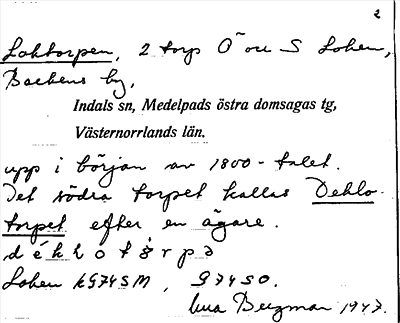 2
Loktorpen, 2 torp Ö om S Loken,
Backens by,
Indals sn, Medelpads östra domsagas tg,
Västernorrlands län.
upp i början av 1800-talet.
Det södra torpet kallas Dehlo-
torpet efter en ägare.
Loken kG74SM, G74SO.
Bergman 1947.